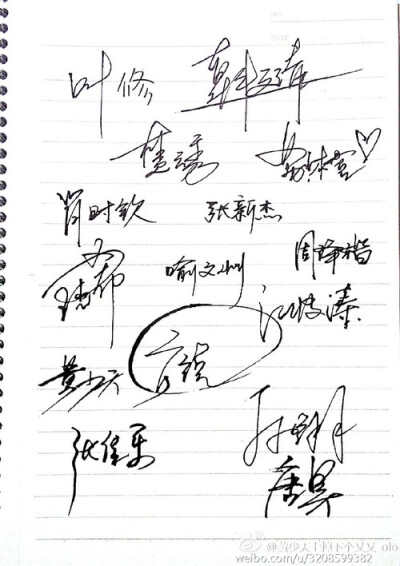 叶修 韩文清
楚云秀 苏沐橙
肖时钦 张新杰
王杰希 喻文州 周泽楷
江波涛
黄少天 方锐
张佳乐 孙翔
唐昊
weibo.com/u/3208599382